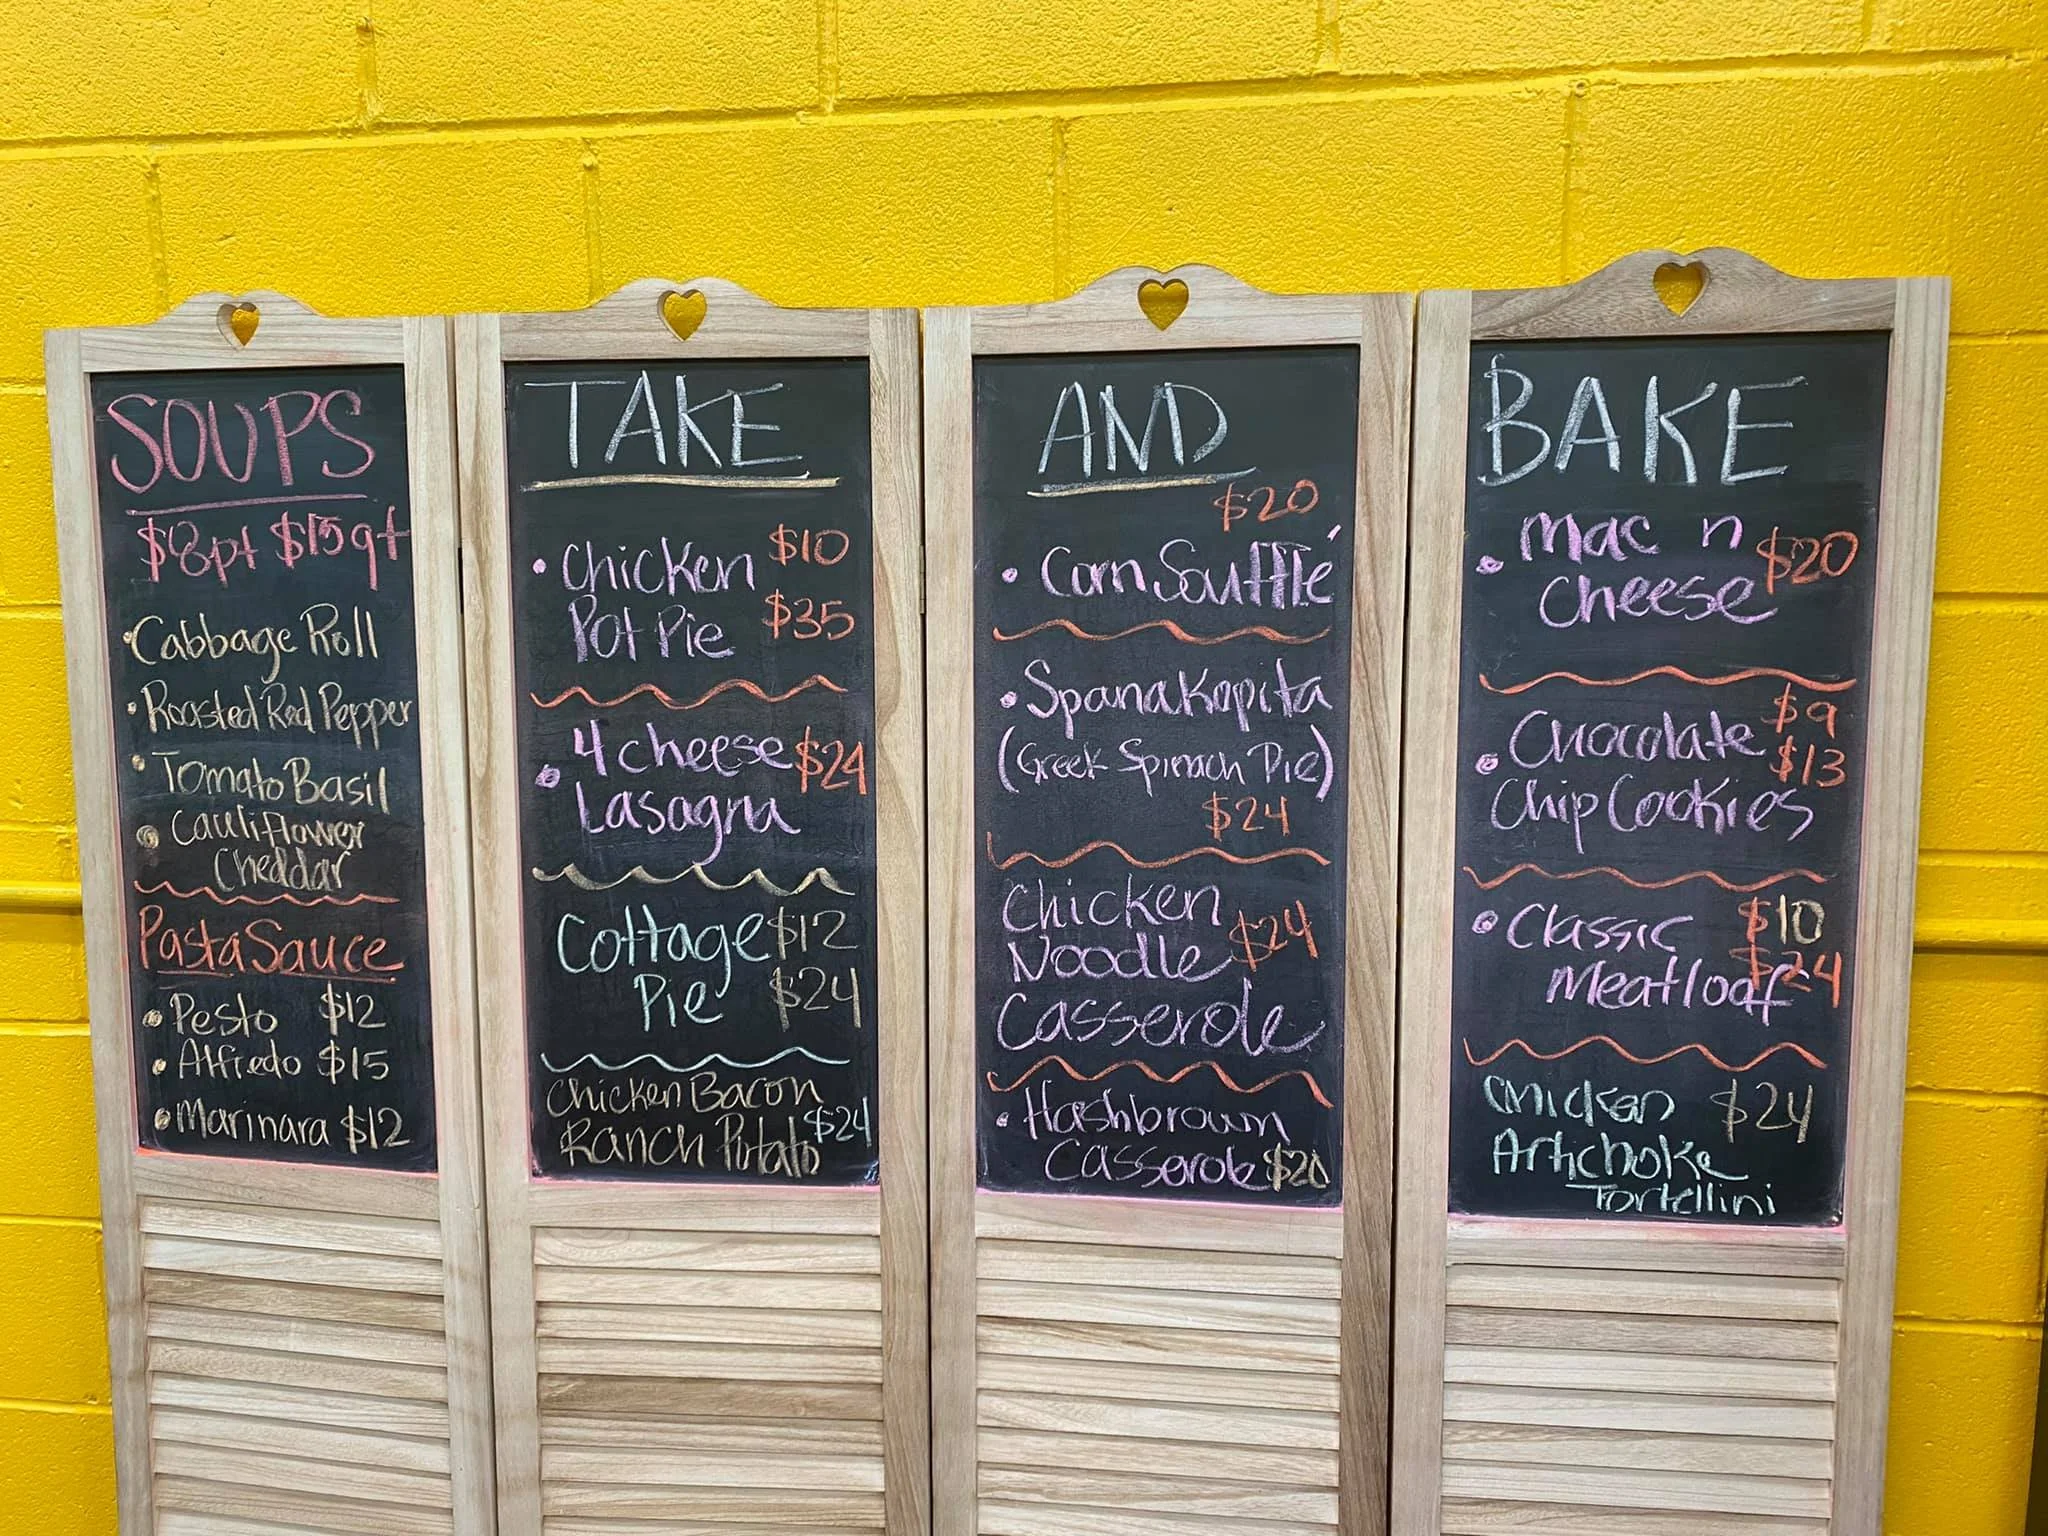 SOUPS
$8pt $15qt
• Cabbage Roll
• Roasted Red Pepper
• Tomato Basil
• Cauliflower
Cheddar
Pasta Sauce
• Pesto $12
• Alfredo $15
• Marinara $12
TAKE
• Chicken $10
Pot Pie $35
• 4 cheese $24
Lasagna
Cottage $12
Pie $24
Chicken Bacon
Ranch Potato $24
AND
$20
• Corn Soufflé
• Spanakopita
(Greek Spinach Pie)
$24
Chicken
Noodle $24
Casserole
• Hashbrown
Casserole $20
BAKE
• Mac n $20
Cheese
• Chocolate $9
$13
Chip Cookies
• Classic $10
Meatloaf $24
Chicken $24
Artichoke
Tortellini